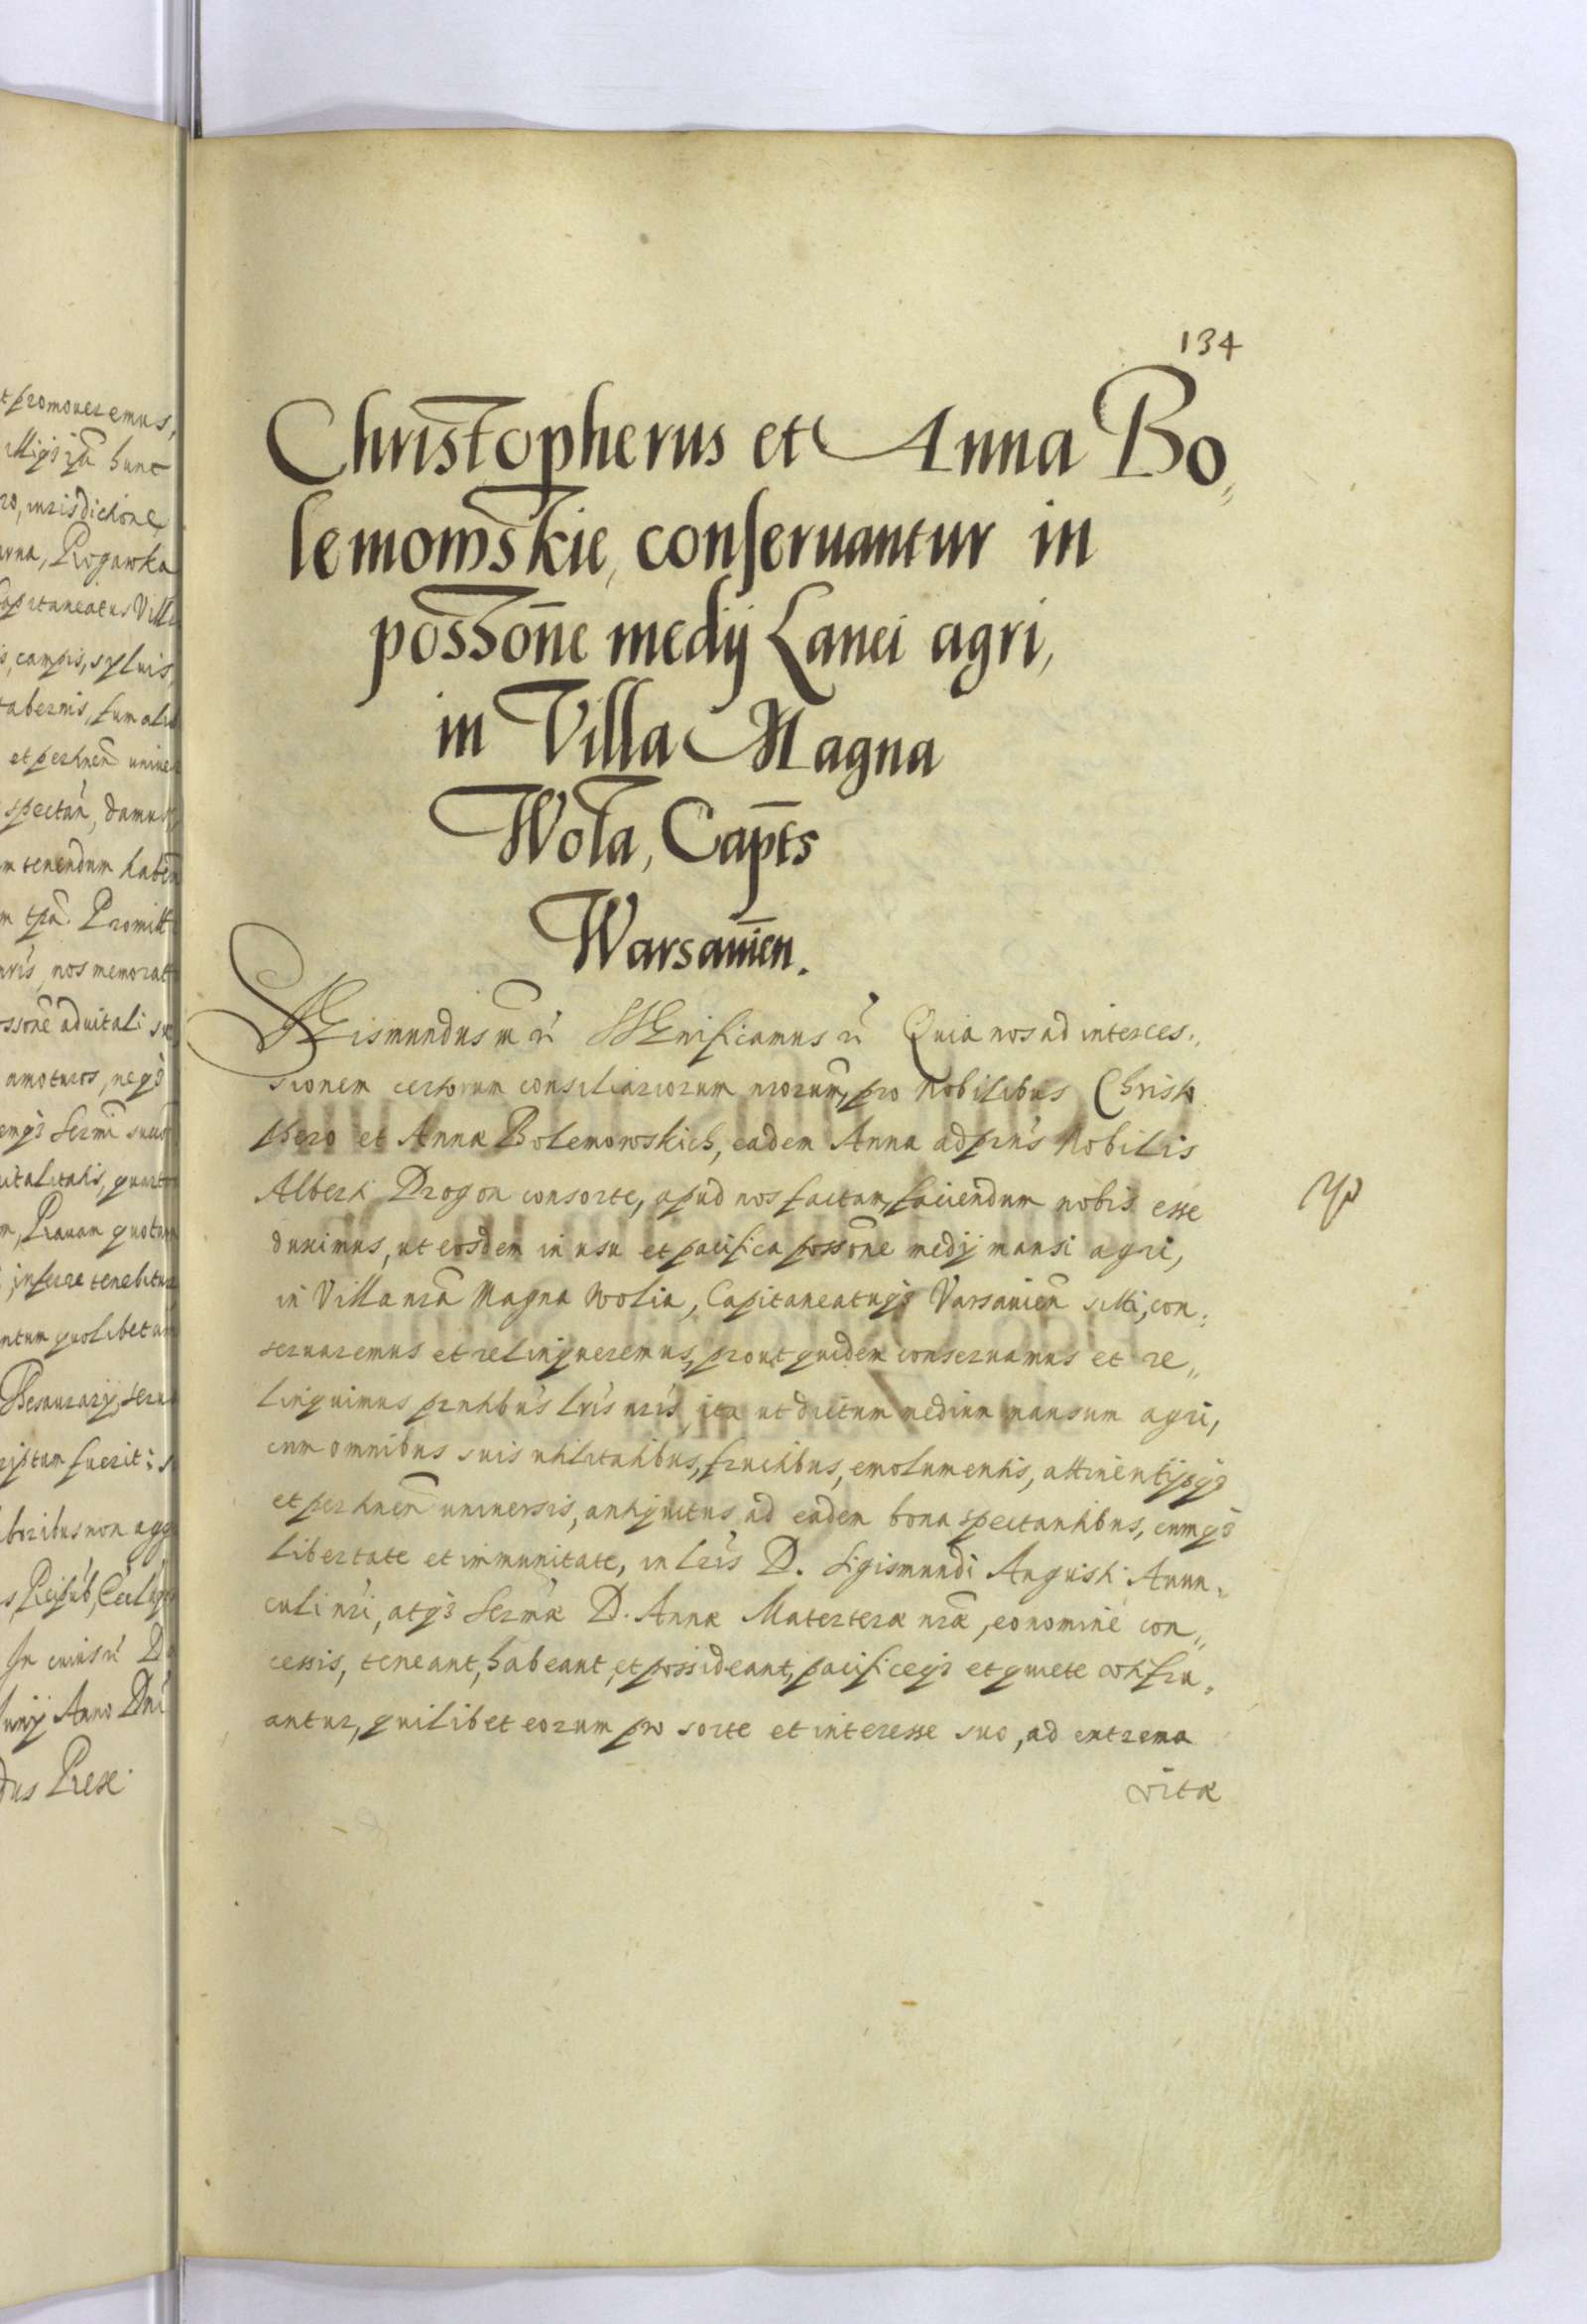 134
Christopherus et Anna Bo„
lemowskie, conseruantur in
possone medij Lanei agri,
in Villa Magna
Wola, Capts
Warsauien.
Sigismundus ... Significamus ... Quia nos ad interces„
sionem certorum consiliariorum nrorum, pro Nobilibus Christo
phero et Anna Bolemowskich, eadem Anna ad prns Nobilis
Alberti Drogon consorte, apud nos factam, faciendum nobis esse
duximus, ut eosdem in usu et pacifica possone medij mansi agri,
in Villa nra Magna Wolia, Capitaneatusqz Varsauien siti, con„
seruaremus et relinqueremus, prout quidem conseruamus et re„
linquimus prntibus lris nris, ita ut dictum medium mansum agri,
cum omnibus suis utilitatibus, fructibus, emolumentis, attinentijsqz
et pertinen uniuersis, antiquitus ad eadem bona spectantibus, cumqz
libertate et immunitate, in lris D. Sigismundi Augusti Auun„
culi nri, atqz Sermæ D. Annæ Materteræ nræ, eo nomine con„
cessis, teneant, habeant, et possideant, pacificeqz et quiete utifru„
antur, quilibet eorum pro sorte et interesse suo, ad extrema
vitæ
t promoueremus,
hunc
ro, iurisdictione
arna, Rogawka
Capitaneatus Villa
s, campis, syluis,
tabernis,
et pertinen uniue
spectan, damus
m tenendum haben
m tpa. Promitt
nris, nos memorat
ossone aduitali su
amoturos, neqz
emqz Sermi succ
uitalitatis, quart
m, Rauam quotan
inferre tenebitur
ntum quolibet an
Thesaurarij, seru
riptum fuerit: s
boribus non agg
In cuius rei D
Iunij Anno Dni
dus Rex.